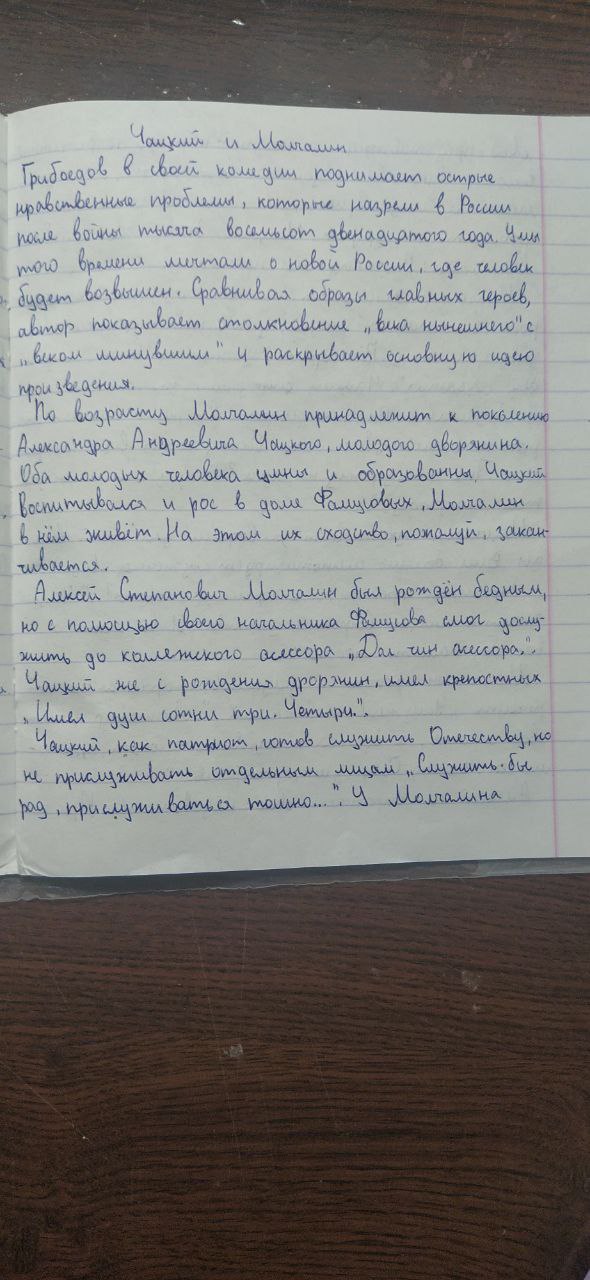 Чацкий и Молчалин
Грибоедов в своей комедии поднимает острые
нравственные проблемы, которые назрели в России
после войны тысяча восемьсот двенадцатого года. Умы
того времени мечтали о новой России, где человек
будет возвышен. Сравнивая образы главных героев,
автор показывает столкновение „века нынешнего" с
„веком минувшим" и раскрывает основную идею
произведения.
По возрасту Молчалин принадлежит к поколению
Александра Андреевича Чацкого, молодого дворянина.
Оба молодых человека умны и образованны. Чацкий
воспитывался и рос в доме Фамусовых, Молчалин
в нём живёт. На этом их сходство, пожалуй, закан-
чивается.
Алексей Степанович Молчалин был рождён бедным,
но с помощью своего начальника Фамусова смог дослу-
жить до коллежского асессора „Дал чин асессора.".
Чацкий же с рождения дворянин, имел крепостных
„Имел душ сотни три. Четыри.".
Чацкий, как патриот, готов служить Отечеству, но
не прислуживать отдельным лицам „Служить бы
рад, прислуживаться тошно...". У Молчалина